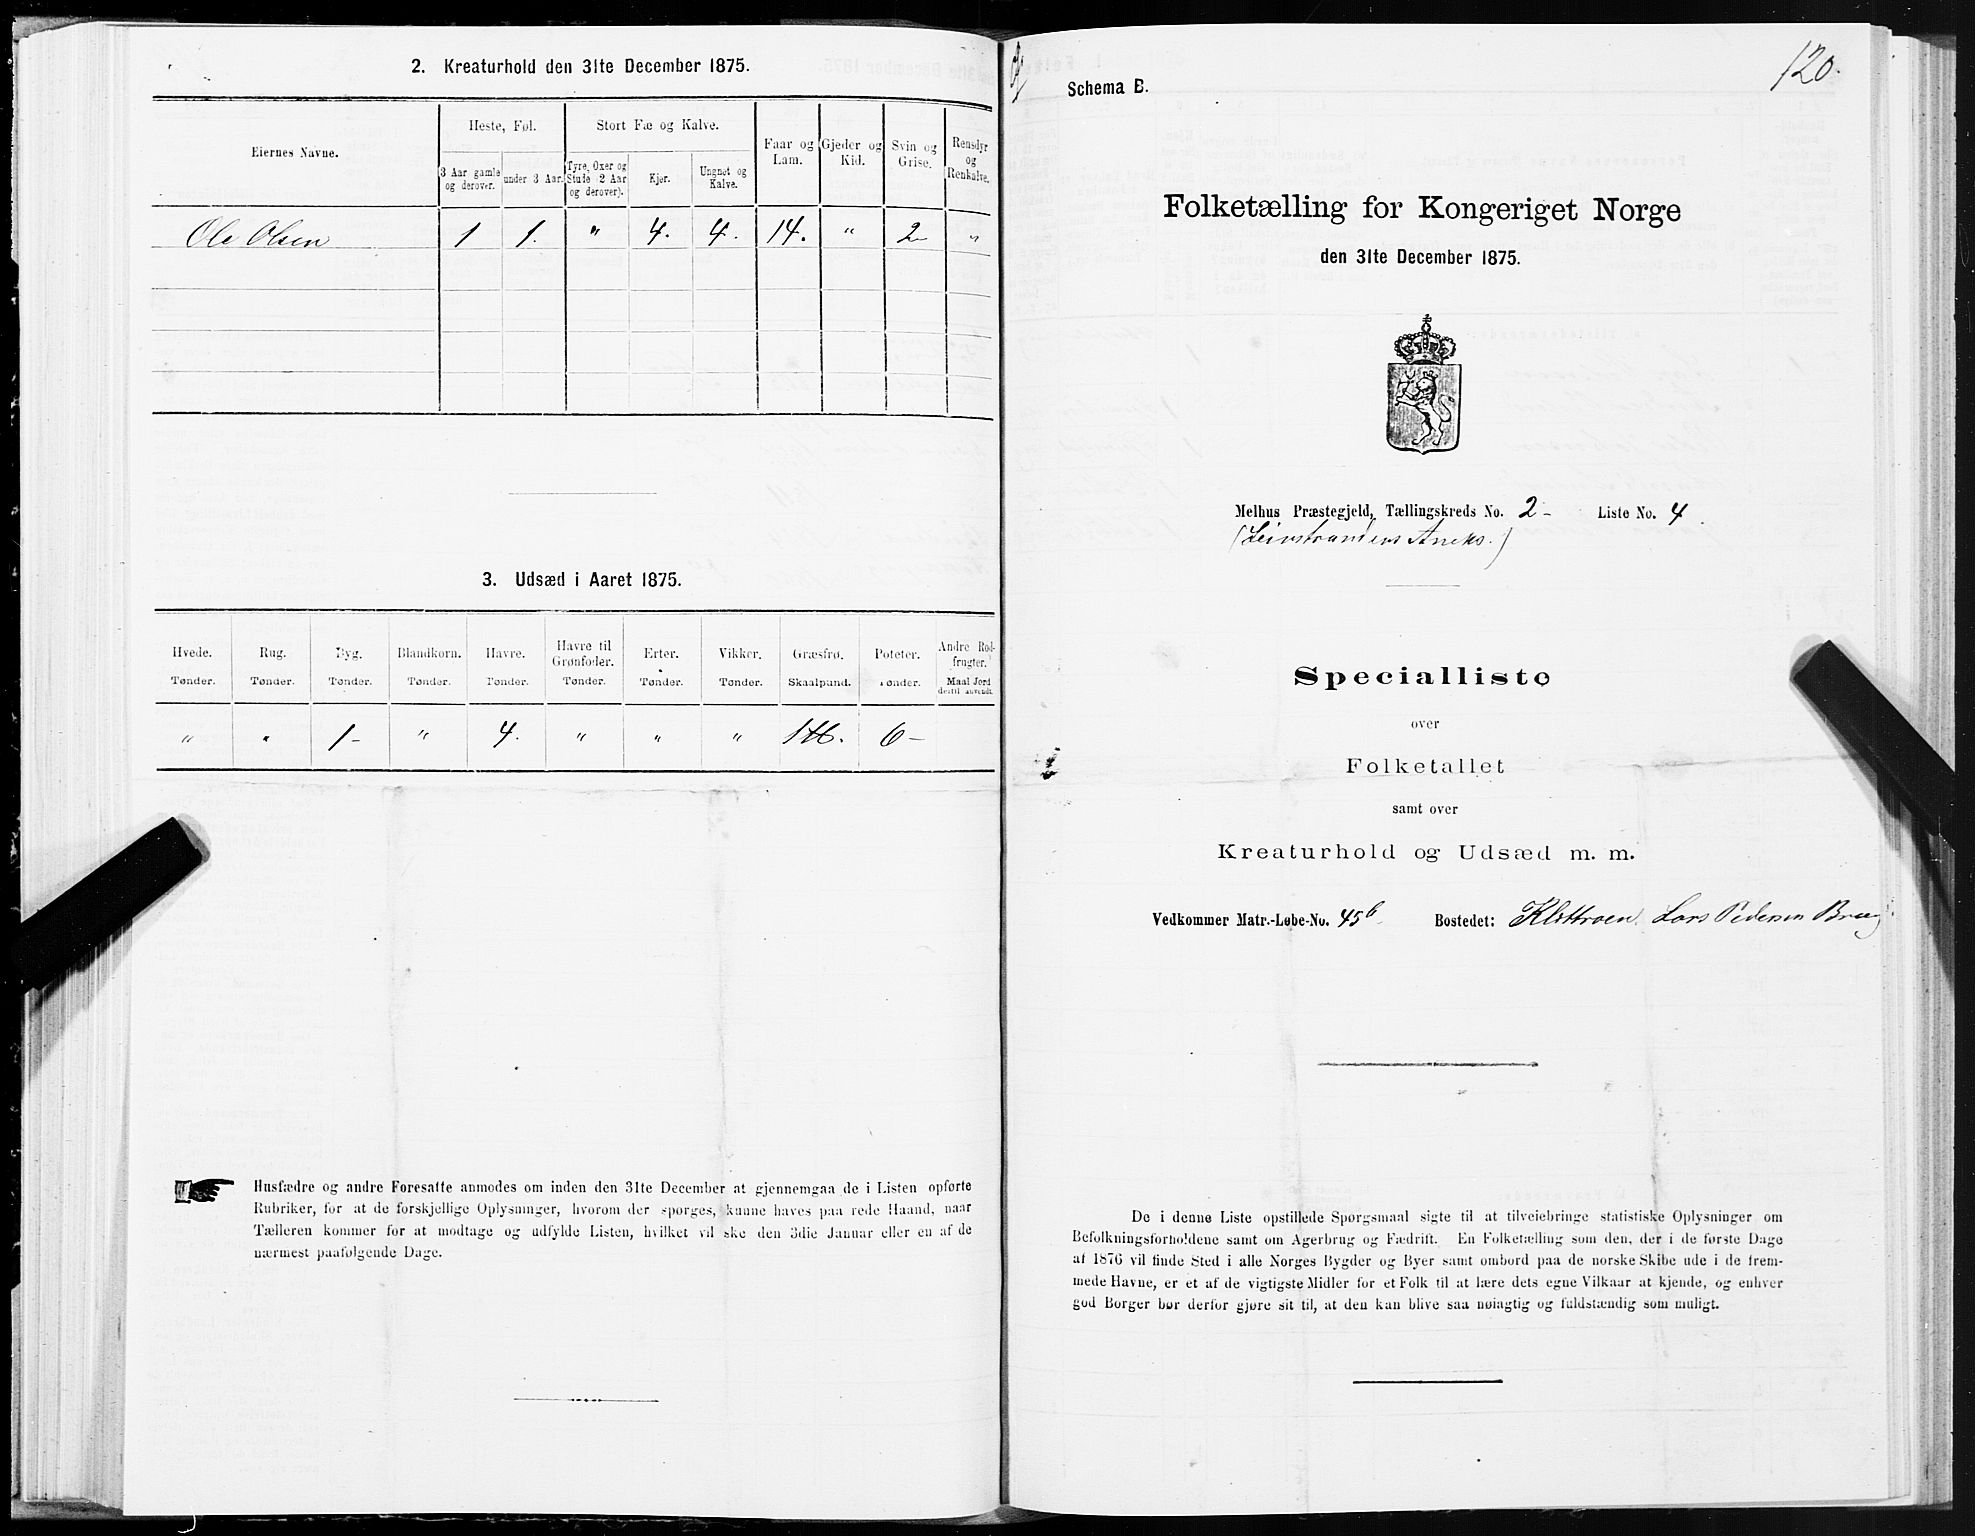 2. Kreaturhold den 31te December 1875.
Eiernes Navne.
Heste, Føl.
Stort Fæ og Kalve.
Faar og Lam.
Gjeder og Kid.
Svin og Grise.
Rensdyr og Renkalve.
3 Aar gamle og derover.
under 3 Aar.
Tyre, Oxer og Stude (2 Aar og derover).
Kjør.
Ungnøt og Kalve.
Ole Olsen 1 1. " 4. 4. 14. " 2 "
3. Udsæd i Aaret 1875.
Hvede. Rug. Byg. Blandkorn. Havre. Havre til Grønfoder. Erter. Vikker. Græsfrø. Poteter. Andre Rodfrugter.
Tønder. Tønder. Tønder. Tønder. Tønder. Tønder. Tønder. Tønder. Skaalpund. Tønder. Maal Jord dertil anvendt.
" " 1 - " 4. " " " 6 -
Husfædre og andre Foresatte anmodes om inden den 31te December at gjennemgaa de i Listen opførte
Rubriker, for at de forskjellige Oplysninger, hvorom der spørges, kunne haves paa rede Haand, naar
Tælleren kommer for at modtage og udfylde Listen, hvilket vil ske den 3die Januar eller en af de
nærmest paafølgende Dage.
120.
Schema B.
Folketælling for Kongeriget Norge
den 31te December 1875.
Melhus Præstegjeld, Tællingskreds No. 2 - Liste No. 4.
(Leinstrandens Aneks.)
Specialliste
over
Folketallet
samt over
Kreaturhold og Udsæd m. m.
Vedkommer Matr.-Løbe-No. 45b Bostedet: Klettroen. Lars Pedersen Brug
De i denne Liste opstillede Spørgsmaal sigte til at tilveiebringe statistiske Oplysninger om
Befolkningsforholdene samt om Agerbrug og Fædrift. En Folketælling som den, der i de første Dage
af 1876 vil finde Sted i alle Norges Bygder og Byer samt ombord paa de norske Skibe ude i de frem-
mede Havne, er et af de vigtigste Midler for et Folk til at lære dets egne Vilkaar at kjende, og enhver
god Borger bør derfor gjøre sit til, at den kan blive saa nøiagtig og fuldstændig som muligt.